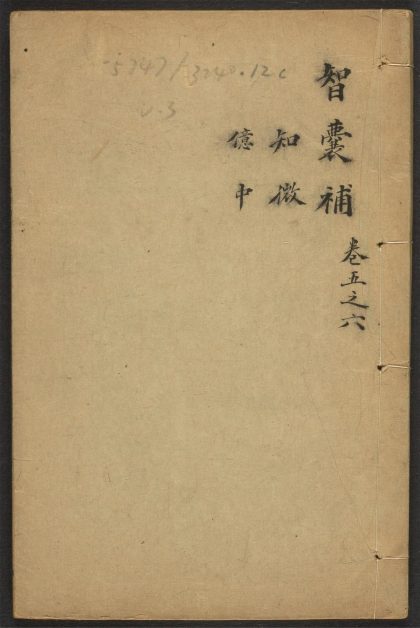 智囊補
卷五之六
知微
億中
v.3